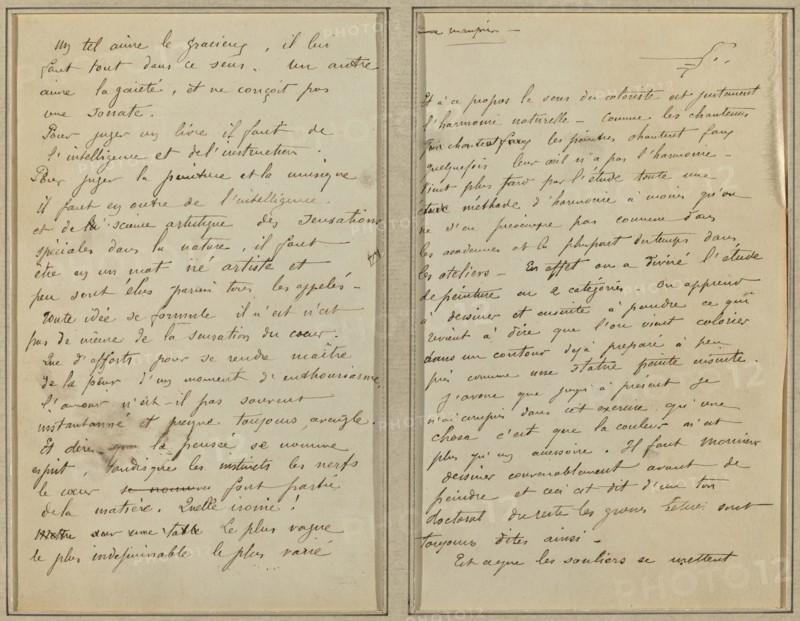 Un tel aime le gracieux, il lui
faut tout dans ce sens. Un autre
aime la gaieté, et ne conçoit pas
une sonate.
Pour juger un livre il faut de
l'intelligence et de l'instruction.
Pour juger la peinture et la musique
il faut en outre de l'intelligence
et de la science artistique des sensations
spéciales dans la nature, il faut
être en un mot né artiste et
peu sont élus parmi tous les appelés -
Toute idée se formule il n'en est
pas de même de la sensation du cœur.
Que d'efforts pour se rendre maître
de la peur d'un moment d'enthousiasme.
L'amour n'est-il pas souvent
instantanné et presque toujours aveugle.
Et dire que la pensée se nomme
esprit, tandisque les instincts les nerfs
le cœur se nomme font partie
de la matière. Quelle ironie!
Mettre sur une table Le plus vague
le plus indéfinissable le plus varié
Et à ce propos le sens du coloriste est justement
l'harmonie naturelle - comme les chanteurs
les peintres chantent faux
quelquefois leur œil n'a pas l'harmonie -
Vient plus tard par l'étude toute une
étude méthode d'harmonie à moins qu'on
ne s'en préoccupe pas comme dans
les académies et la plupart du temps dans
les ateliers - En effet on a divisé l'étude
de peinture en 2 catégories. On apprend
à dessiner et ensuite à peindre ce qui
revient à dire que l'on vient colorier
dans un contour déjà préparé à peu
près comme une statue peinte ensuite.
J'avoue que jusqu'à présent je
n'ai compris dans cet exercice qu'une
chose c'est que la couleur n'est
plus qu'un accessoire. Il faut Monsieur
dessiner convenablement avant de
peindre et ceci est dit d'un ton
doctoral du reste les grosses bêtises sont
toujours dites ainsi -
Est ce que les souliers se mettent